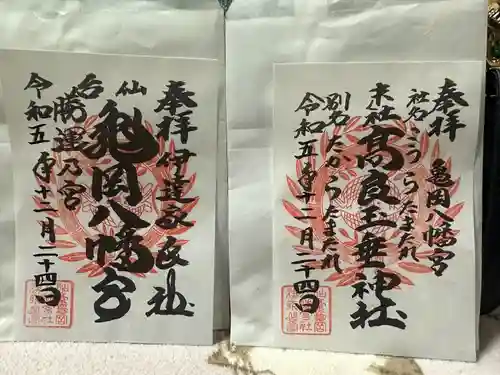 奉拝 伊達家氏社
仙
亀岡八幡宮
台
勝運乃宮
令和五年十二月二十四日
奉拝 亀岡八幡宮
社名 こうらたまだれ
末社 高良玉垂神社
別名 たからだまだれ
令和五年十二月二十四日